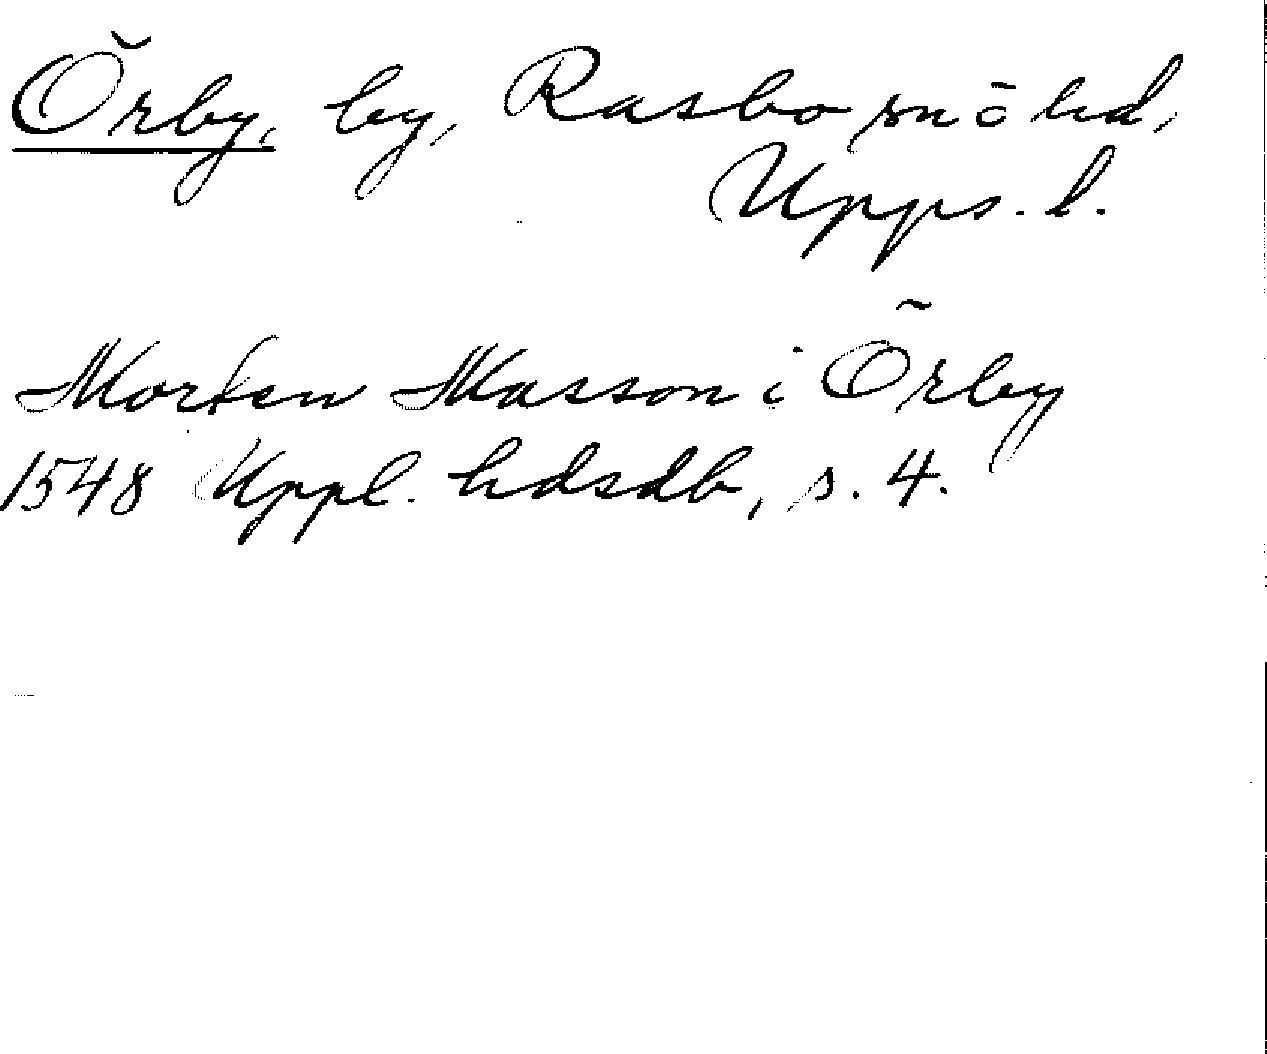 Örby, by, Rasbo sn o hd,
Upps. l.
Morten Masson i Örby
1548 Uppl. hdsdb, s. 4.